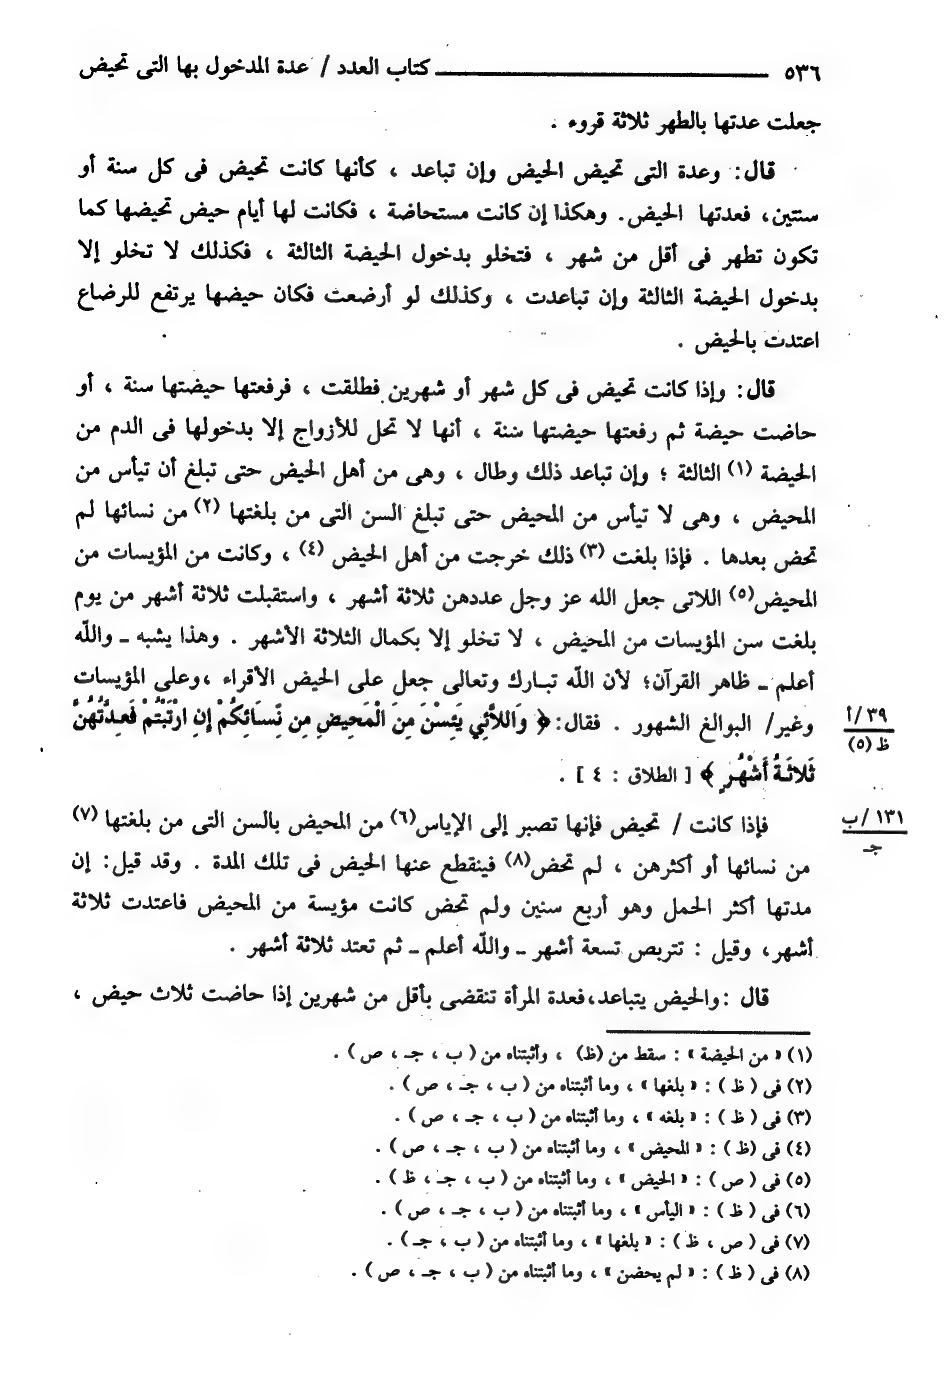 ٥٣٦ كتاب العدد / عدة المدخول بها التى تحيض
جعلت عدتها بالطهر ثلاثة قروء .
قال: وعدة التى تحيض الحيض وإن تباعد ، كأنها كانت تحيض فى كل سنة أو
سنتين، فعدتها الحيض. وهكذا إن كانت مستحاضة ، فكانت لها أيام حيض تحيضها كما
تكون تطهر فى أقل من شهر ، فتخلو بدخول الحيضة الثالثة ، فكذلك لا تخلو إلا
بدخول الحيضة الثالثة وإن تباعدت ، وكذلك لو أرضعت فكان حيضها يرتفع للرضاع
اعتدت بالحيض .
قال: وإذا كانت تحيض فى كل شهر أو شهرين فطلقت ، فرفعتها حيضتها سنة ، أو
حاضت حيضة ثم رفعتها حيضتها سنة ، أنها لا تحل للأزواج إلا بدخولها فى الدم من
الحيضة (١) الثالثة ؛ وإن تباعد ذلك وطال ، وهى من أهل الحيض حتى تبلغ أن تيأس من
المحيض ، وهى لا تيأس من المحيض حتى تبلغ السن التى من بلغتها (٢) من نسائها لم
تحض بعدها . فإذا بلغت (٣) ذلك خرجت من أهل الحيض (٤) ، وكانت من المؤيسات من
المحيض(٥) اللاتى جعل الله عز وجل عددهن ثلاثة أشهر ، واستقبلت ثلاثة أشهر من يوم
بلغت سن المؤيسات من المحيض ، لا تخلو إلا بكمال الثلاثة الأشهر . وهذا يشبه ـ والله
أعلم ـ ظاهر القرآن؛ لأن الله تبارك وتعالى جعل على الحيض الأقراء ،وعلى المؤيسات
وغير/ البوالغ الشهور . فقال: ﴿ وَاللاَّئِي يَئِسْنَ مِنَ الْمَحِيضِ مِن نِّسَائِكُمْ إِنِ ارْتَبْتُمْ فَعِدَّتُهُنَّ
٣٩/أ
ظ (٥)
ثَلاثَةُ أَشْهُرٍ ﴾ [ الطلاق : ٤ ] .
فإذا كانت / تحيض فإنها تصبر إلى الإياس(٦) من المحيض بالسن التى من بلغتها (٧)
١٣١/ب
جـ
من نسائها أو أكثرهن ، لم تحض(٨) فينقطع عنها الحيض فى تلك المدة . وقد قيل: إن
مدتها أكثر الحمل وهو أربع سنين ولم تحض كانت مؤيسة من المحيض فاعتدت ثلاثة
أشهر، وقيل : تتربص تسعة أشهر ـ والله أعلم ـ ثم تعتد ثلاثة أشهر .
قال :والحيض يتباعد،فعدة المرأة تنقضى بأقل من شهرين إذا حاضت ثلاث حيض ،
(١) « من الحيضة » : سقط من (ظ) ، وأثبتناه من ( ب ، جـ ، ص ) .
(٢) فى ( ظ ) : « بلغها » ، وما أثبتناه من ( ب ، جـ ، ص ) .
(٣) فى ( ظ ) : « بلغه » ، وما أثبتناه من ( ب ، جـ ، ص ) .
(٤) فى (ظ ) : « المحيض » ، وما أثبتناه من ( ب ، جـ ، ص ) .
(٥) فى ( ص ) : « الحيض » ، وما أثبتناه من ( ب ، جـ ، ظ ) .
(٦) فى ( ظ ) : « اليأس » ، وما أثبتناه من ( ب ، جـ ، ص ) .
(٧) فى ( ص ، ظ ) : « بلغها » ، وما أثبتناه من ( ب ، جـ ) .
(٨) فى ( ظ ) : « لم يحضن » ، وما أثبتناه من ( ب ، جـ ، ص ) .